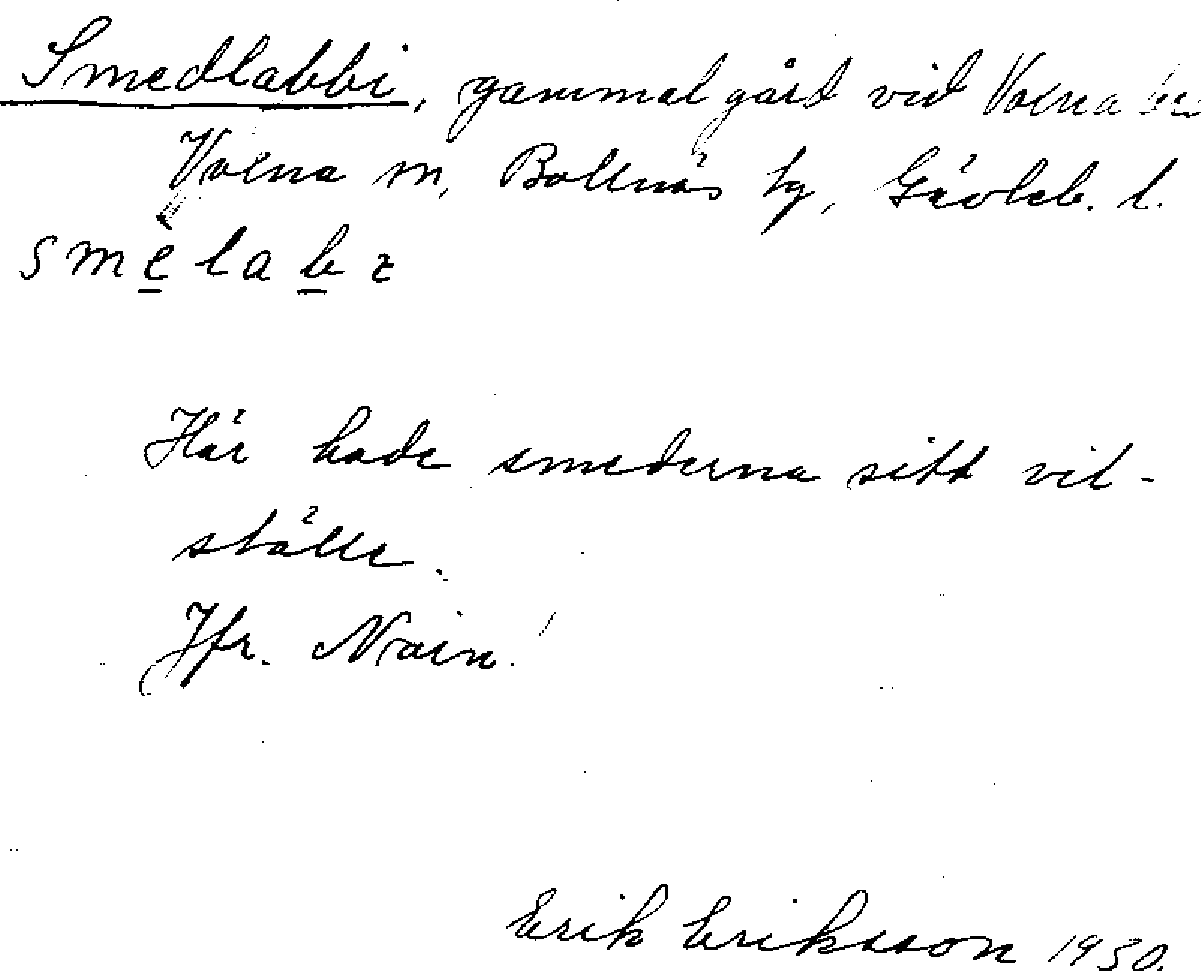 Smedlabbi, gammal gård vid Voxna
Voxna sn, Bollnäs tg, Gävleb. l.
smèlabɩ
Här hade smederna sitt vil-
ställe.
Jfr. Nain!
Erik Eriksson 1930.